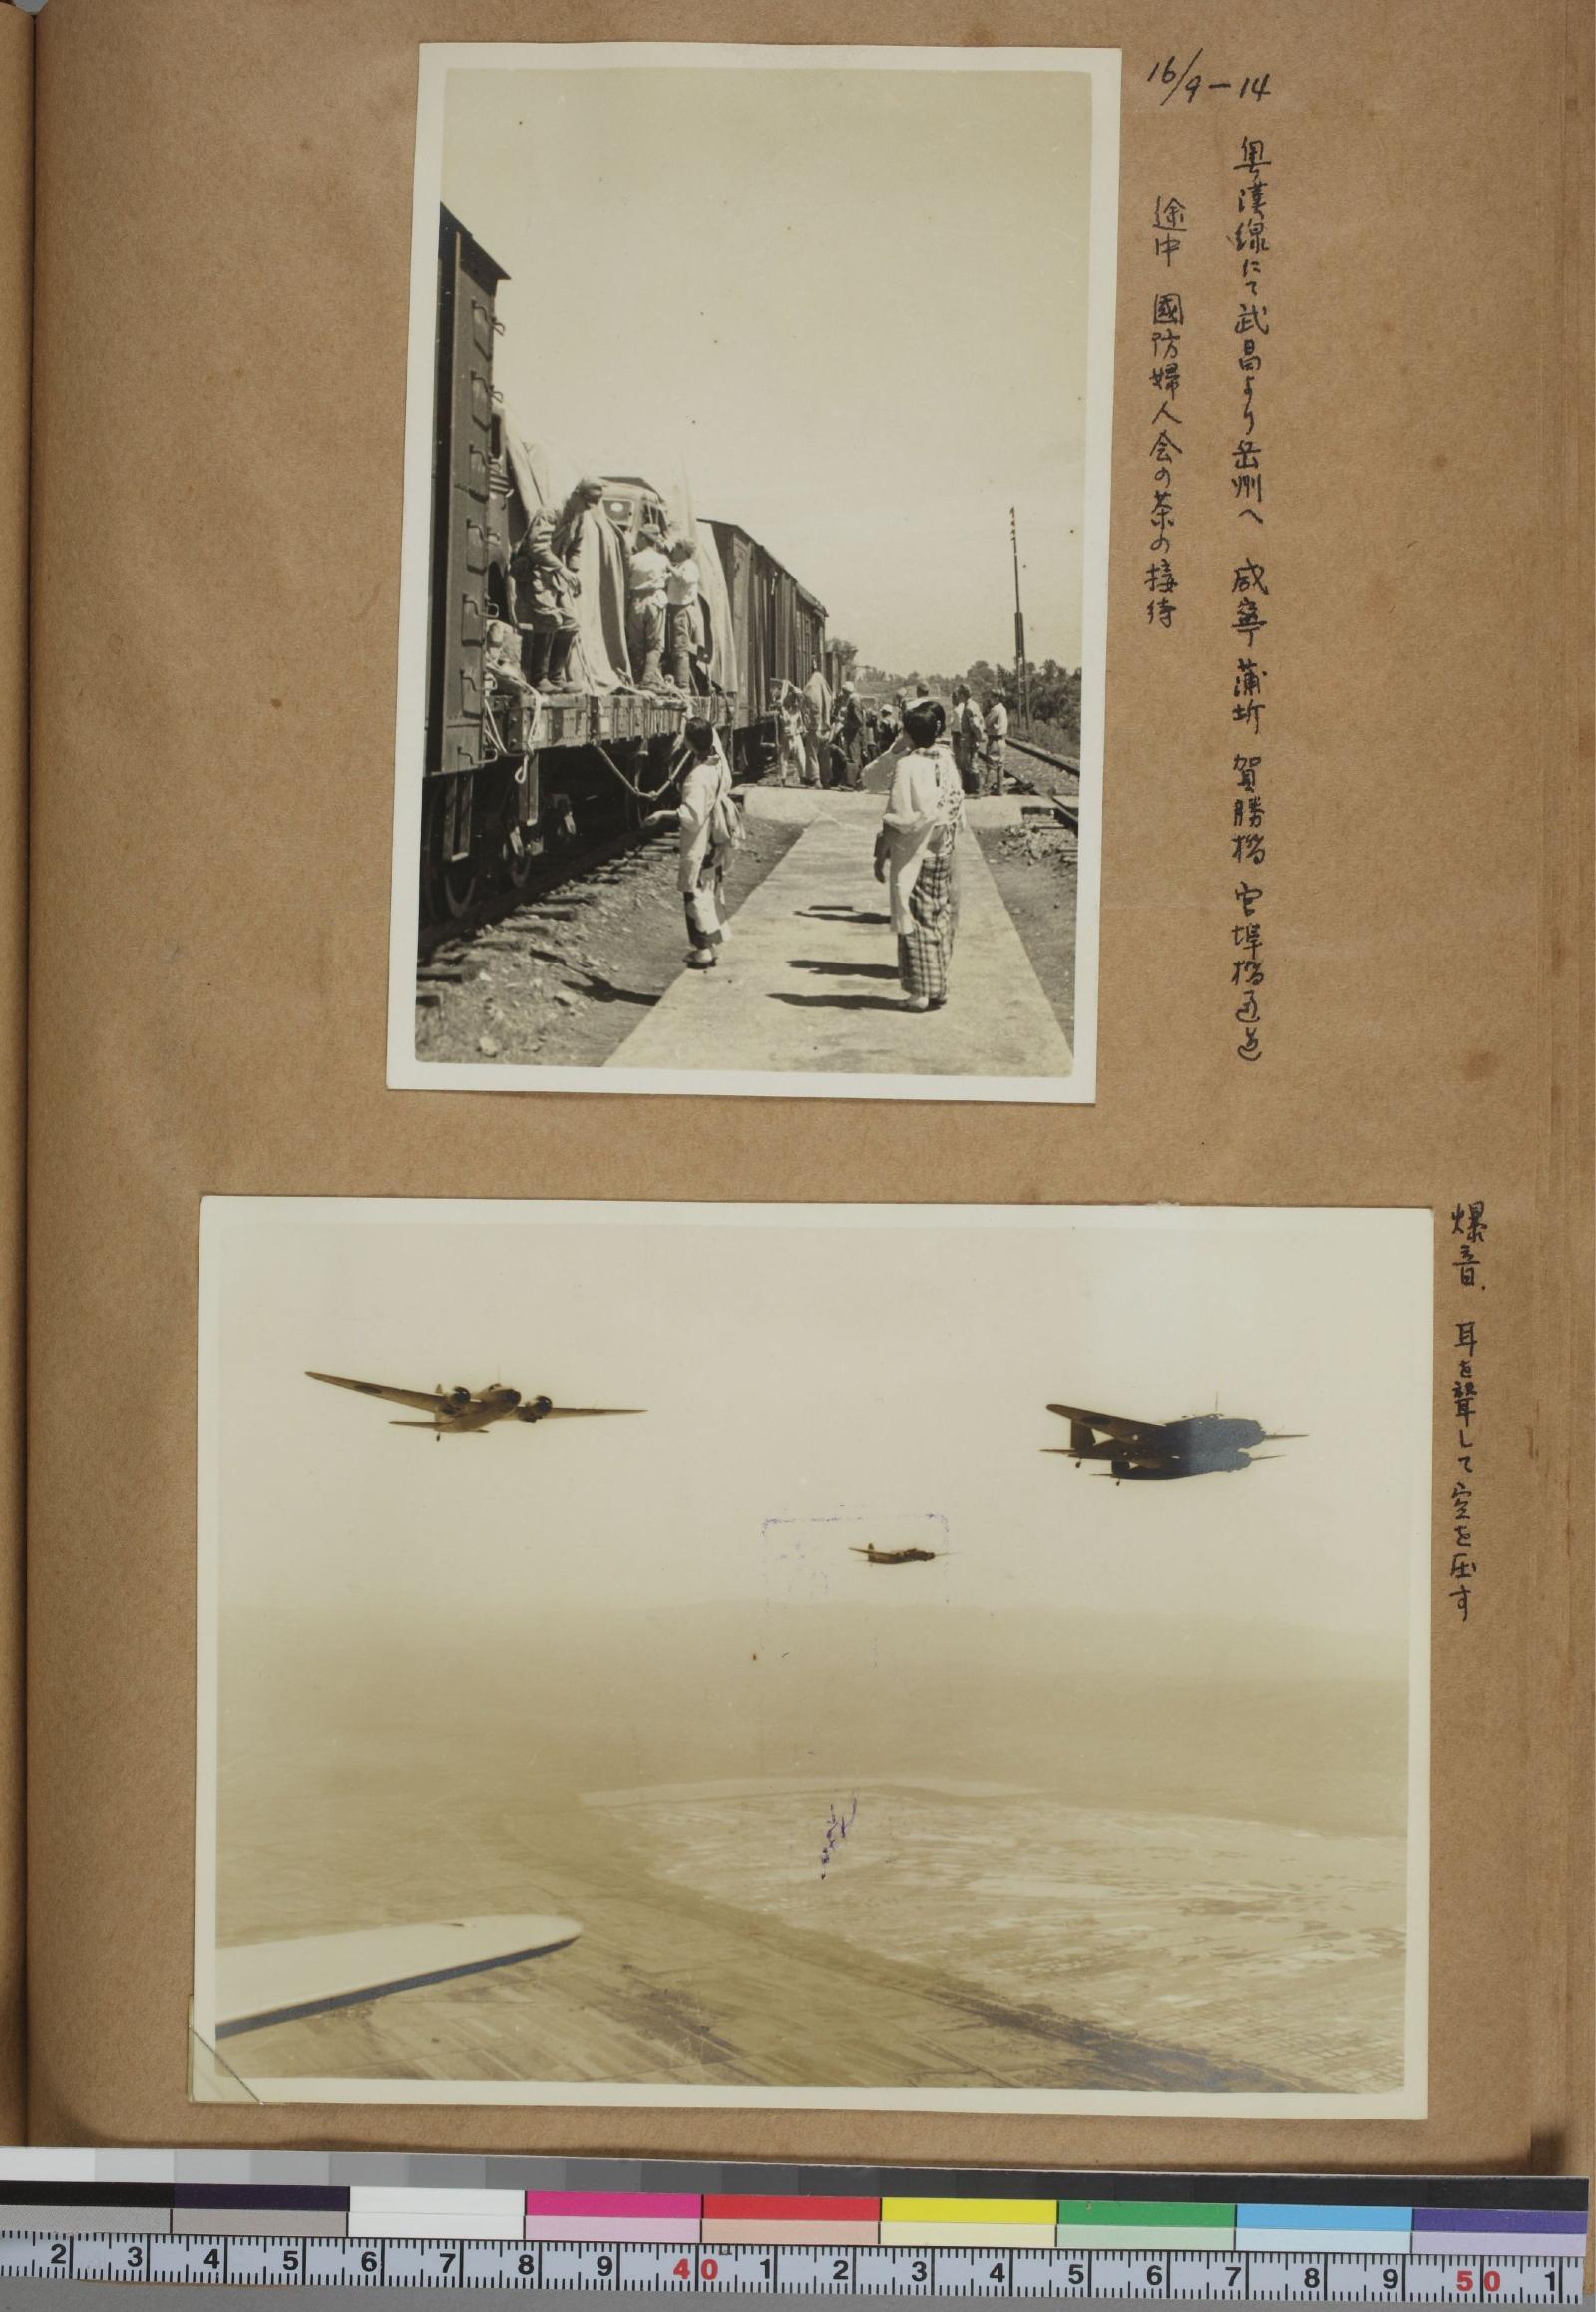 16/9-14
粤漢線にて武昌より岳州へ 咸寧 蒲圻 賀勝橋 官埠橋通過
途中 國防婦人会の茶の接待
爆音、耳を聾して空を圧す
2 3 4 5 6 7 8 9 40 1 2 3 4 5 6 7 8 9 50 1